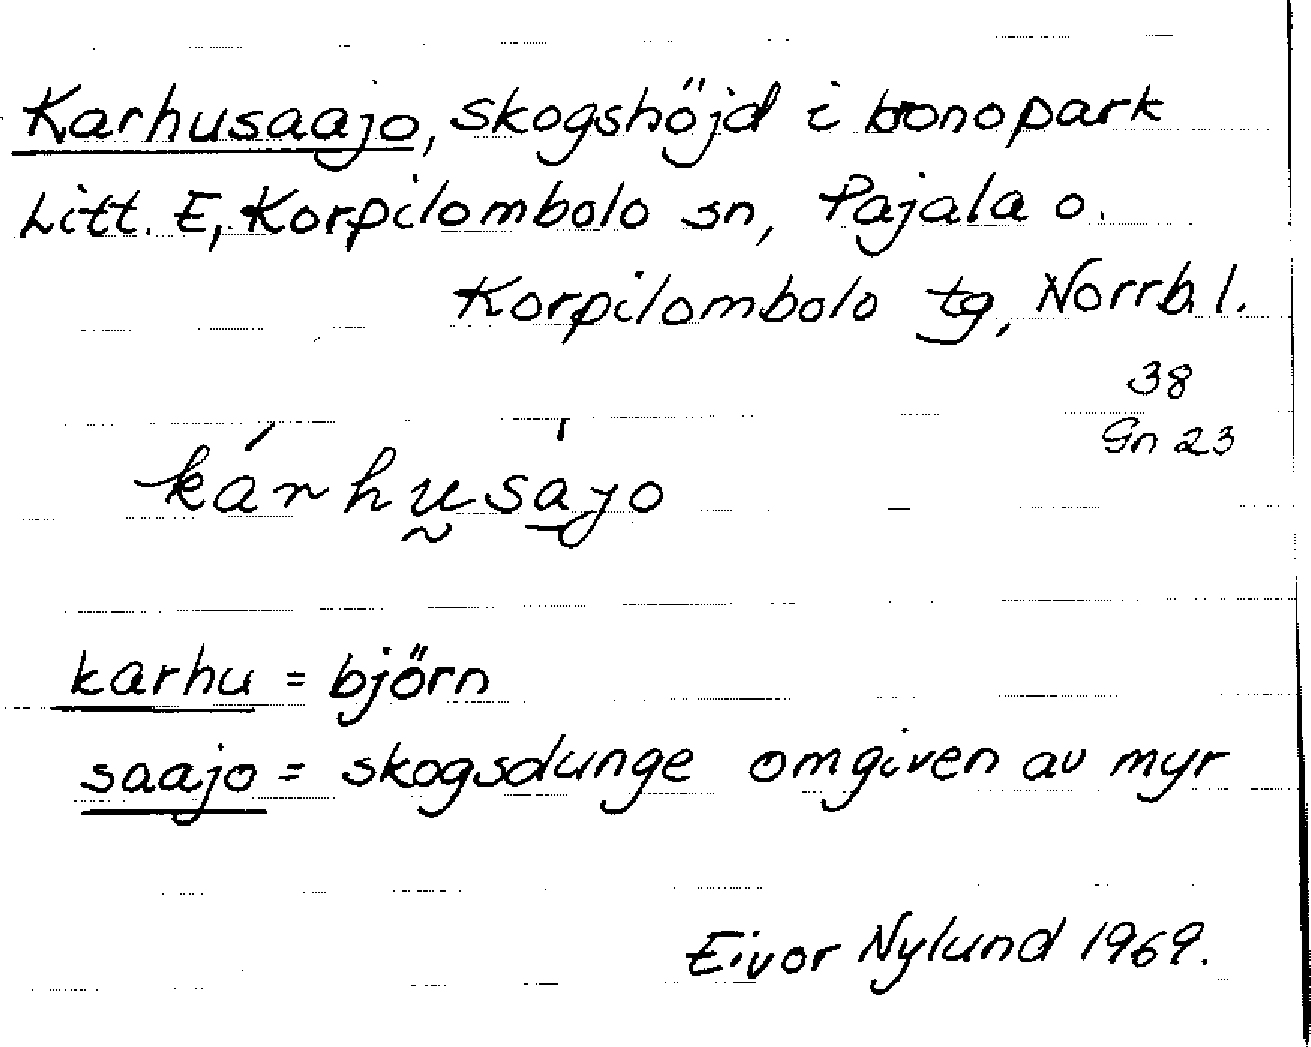 Karhusaajo, skogshöjd i kronopark
Litt. E, Korpilombolo sn, Pajala o.
Korpilombolo tg, Norrb. l.
38
Gn 23
kárhusajo
karhu = björn
saajo = skogsdunge omgiven av myr
Eivor Nylund 1969.